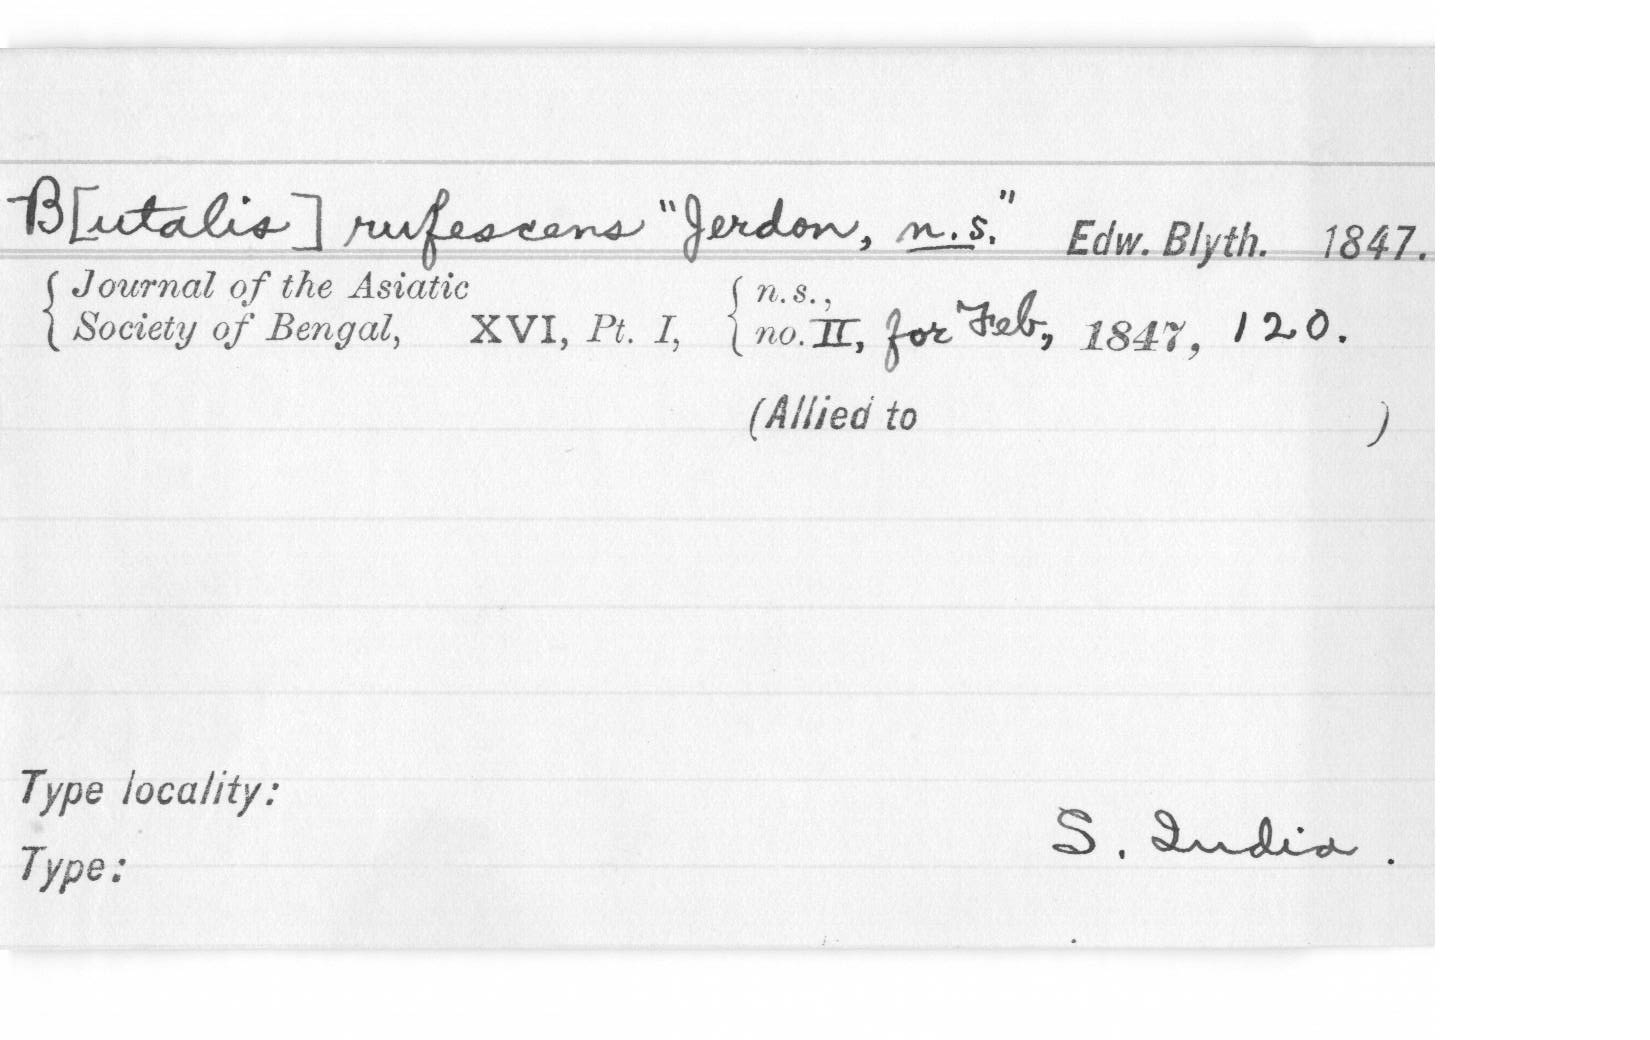 B[utalis] rufescens "Jerdon, n.s." Edw. Blyth. 1847.
Journal of the Asiatic
Society of Bengal, XVI, Pt. I, n.s., no. II, for Feb, 1847, 120.
(Allied to )
Type locality:
S. India.
Type: